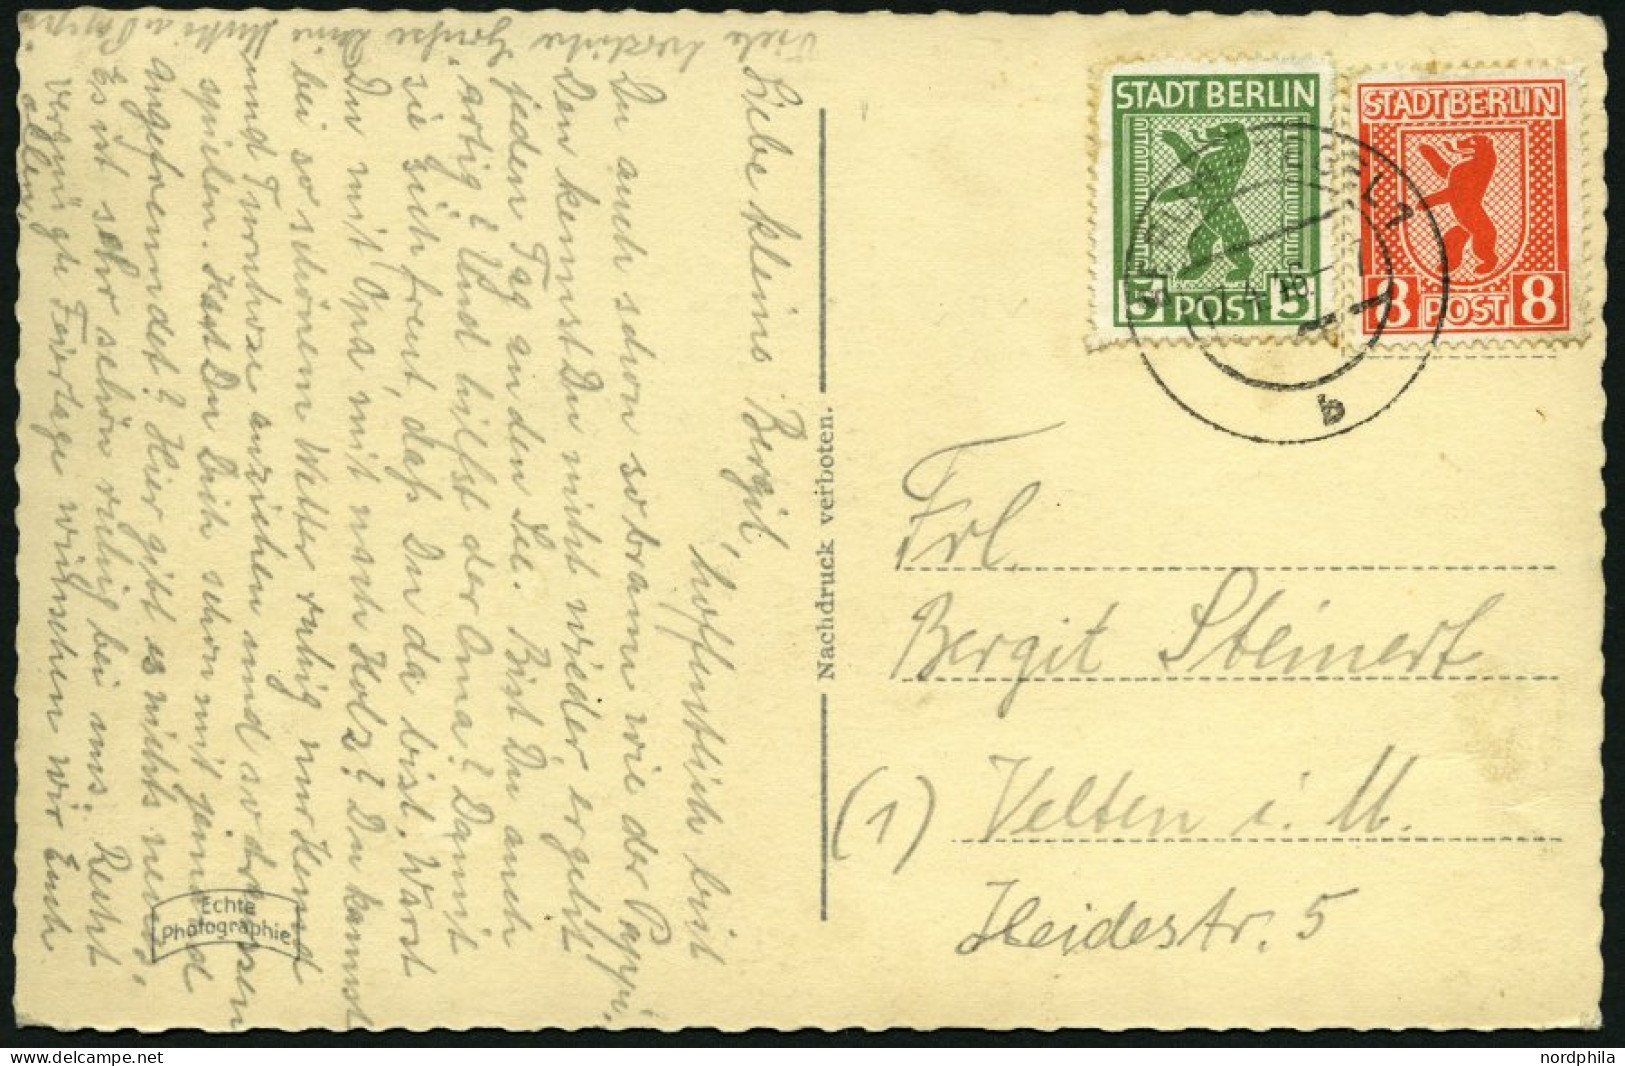 Liebe kleine Bergit,
hoffentlich bist
Du auch schon so braun wie der Pappi,
Den kennst Du nicht wieder, er geht
jeden Tag an den See. Bist Du auch
artig? Und hilfst der Oma? Damit
sie sich freut, daß Du da bist. Warst
Du mit Opa mit nach Holz? Du kannst
bei so schönem Wetter ruhig nur Hemd
und Turnhose anziehen und so draussen
spielen. Hast Du Dich schon mit jemand
angefreundet? Hier gibt es nichts neues,
Es ist sehr schön ruhig bei uns. Recht
vergnügte Feiertage wünschen wir Euch
allen,
Viele herzliche Grüsse Deine Mutti u. Pappi.
Nachdruck verboten.
Echte
Photographie
STADT BERLIN
5 POST 5
STADT BERLIN
8 POST 8
b
Frl.
Bergit Steinert
(1) Velten i. M.
Heidestr. 5
nordphila